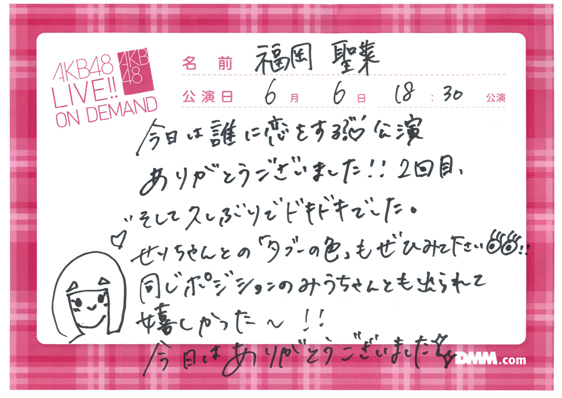 AKB48
LIVE!!
ON DEMAND
AKB
48
名前 福岡 聖菜
公演日 6月 6日 18:30 公演
今日は誰に恋をする?公演
ありがとうございました!!2回目、
そして久しぶりでドキドキでした。
せりちゃんとの「タブーの色」もぜひみて下さい!!
同じポジションのみうちゃんとも出られて
嬉しかった〜!!
今日はありがとうございました
DMM.com